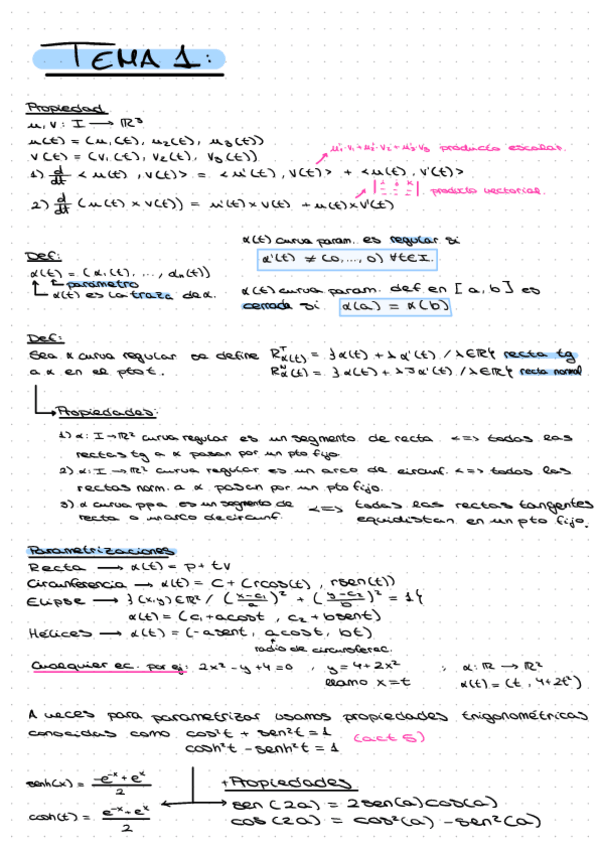 TEMA 1:
Propiedad
u, v : I → ℝ³
u(t) = (u₁(t), u₂(t), u₃(t))
v(t) = (v₁(t), v₂(t), v₃(t))
u₁·v₁+u₂·v₂+u₃·v₃ producto escalar.
1) d/dt <u(t), v(t)> = <u'(t), v(t)> + <u(t), v'(t)>
producto vectorial.
2) d/dt (u(t) x v(t)) = u'(t) x v(t) + u(t) x v'(t)
α(t) curva param. es regular si
α'(t) ≠ (0,...,0) ∀t∈I.
Def:
α(t) = (α₁(t), ..., αn(t))
parámetro
α(t) es la traza de α.
α(t) curva param. def. en [a, b] es
cerrada si α(a) = α(b)
Def:
Sea α curva regular se define R^T α(t) = {α(t) + λ α'(t) / λ∈ℝ} recta tg
a α en el pto t. R^N α(t) = {α(t) + λ J α'(t) / λ∈ℝ} recta normal
Propiedades:
1) α: I → ℝ² curva regular es un segmento de recta <=> todas las
rectas tg a α pasan por un pto fijo.
2) α: I → ℝ² curva regular es un arco de circunf. <=> todas las
rectas norm. a α pasan por un pto fijo.
3) α curva ppa es un segmento de <=> todas las rectas tangentes
recta o un arco de circunf. equidistan en un pto fijo.
Parametrizaciones
Recta → α(t) = p + tv
Circunferencia → α(t) = c + (r cos(t), r sen(t))
Elipse → {(x,y)∈ℝ² / ((x-c₁)/a)² + ((y-c₂)/b)² = 1}
α(t) = (c₁+a cost, c₂+b sent)
Hélices → α(t) = (-a sent, a cost, bt)
radio de circunferec.
Cualquier ec. por ej: 2x² - y + 4 = 0 , y = 4+2x² , α: ℝ → ℝ²
llamo x=t α(t) = (t, 4+2t²)
A veces para parametrizar usamos propiedades trigonométricas
conocidas como cos²t + sen²t = 1
(act 5)
cosh²t - senh²t = 1
senh(x) = (-e^-x + e^x)/2
cosh(t) = (e^-x + e^x)/2
+Propiedades
sen(2a) = 2sen(a)cos(a)
cos(2a) = cos²(a) - sen²(a)